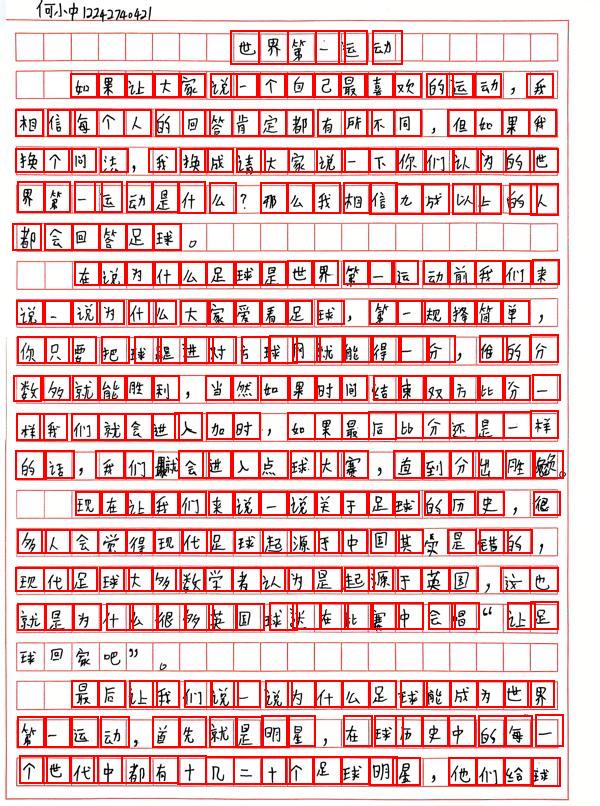 何小中12242740421
世界第一运动
如果让大家说一个自己最喜欢的运动，我
相信每个人的回答肯定都有所不同，但如果我
换个问法，我换成请大家说一下你们认为的世
界第一运动是什么？那么我相信九成以上的人
都会回答足球。
在说为什么足球是世界第一运动前我们来
说一说为什么大家爱看足球，第一规择简单，
你只要把球踢进对方球网就能得一分，俗的分
数多就能胜利，当然如果时间结束双方比分一
样我们就会进入加时，如果最后比分还是一样
的话，我们就会进入点球大赛，直到分出胜负。
现在让我们来说一说关于足球的历史，很
多人会觉得现代足球起源于中国其实是错的，
现代足球大多数学者认为是起源于英国，这也
就是为什么很多英国球迷在比赛中会唱“让足
球回家吧”。
最后让我们说一说为什么足球能成为世界
第一运动，首先就是明星，在球历史中的每一
个世代中都有十几二十个足球明星，他们给球